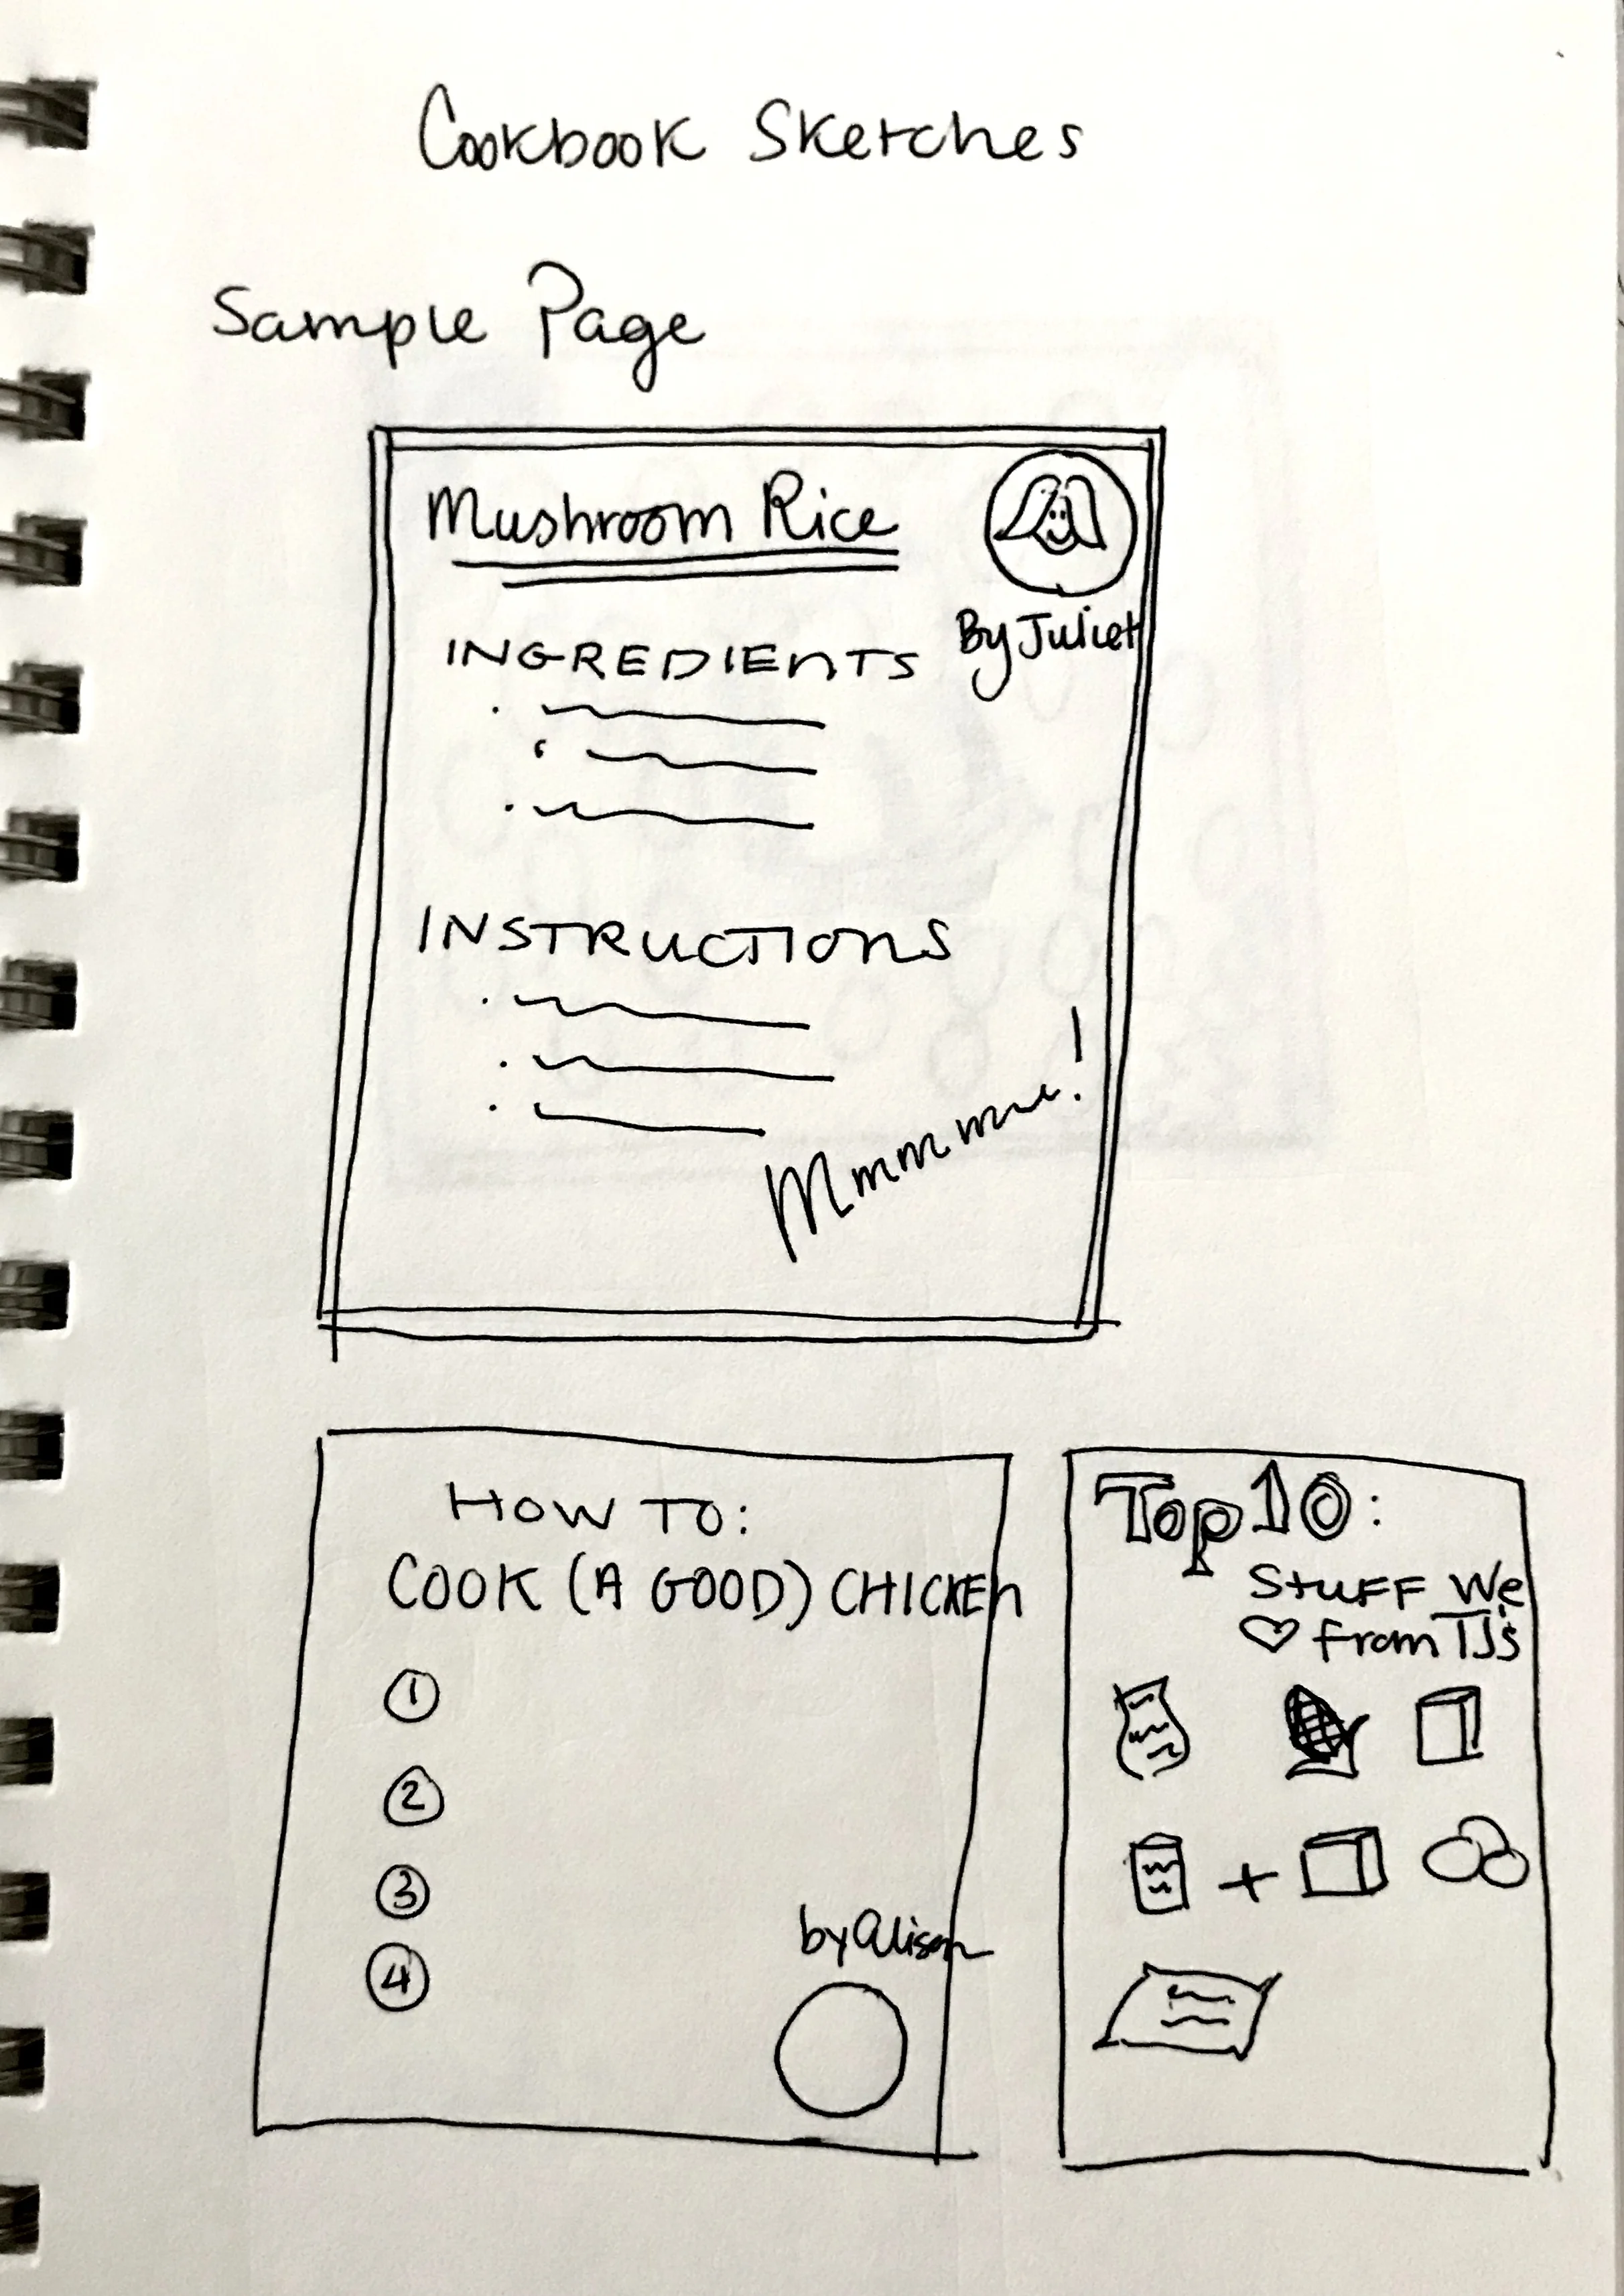 Cookbook Sketches
Sample Page
Mushroom Rice
By Juliet
INGREDIENTS
INSTRUCTIONS
Mmmmmm!
HOW TO:
COOK (A GOOD) CHICKEN
1
2
3
4
by alison
Top 10:
Stuff We
♡ from TJ's
+